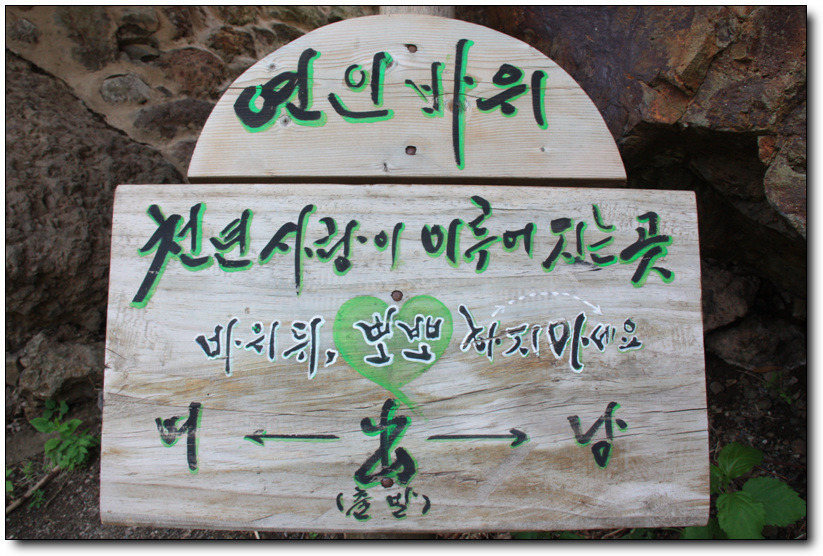 연인바위
천년사랑이 이루어 지는곳
바위뒤, 뽀뽀 하지마세요
여 ← 出 → 남
(출발)